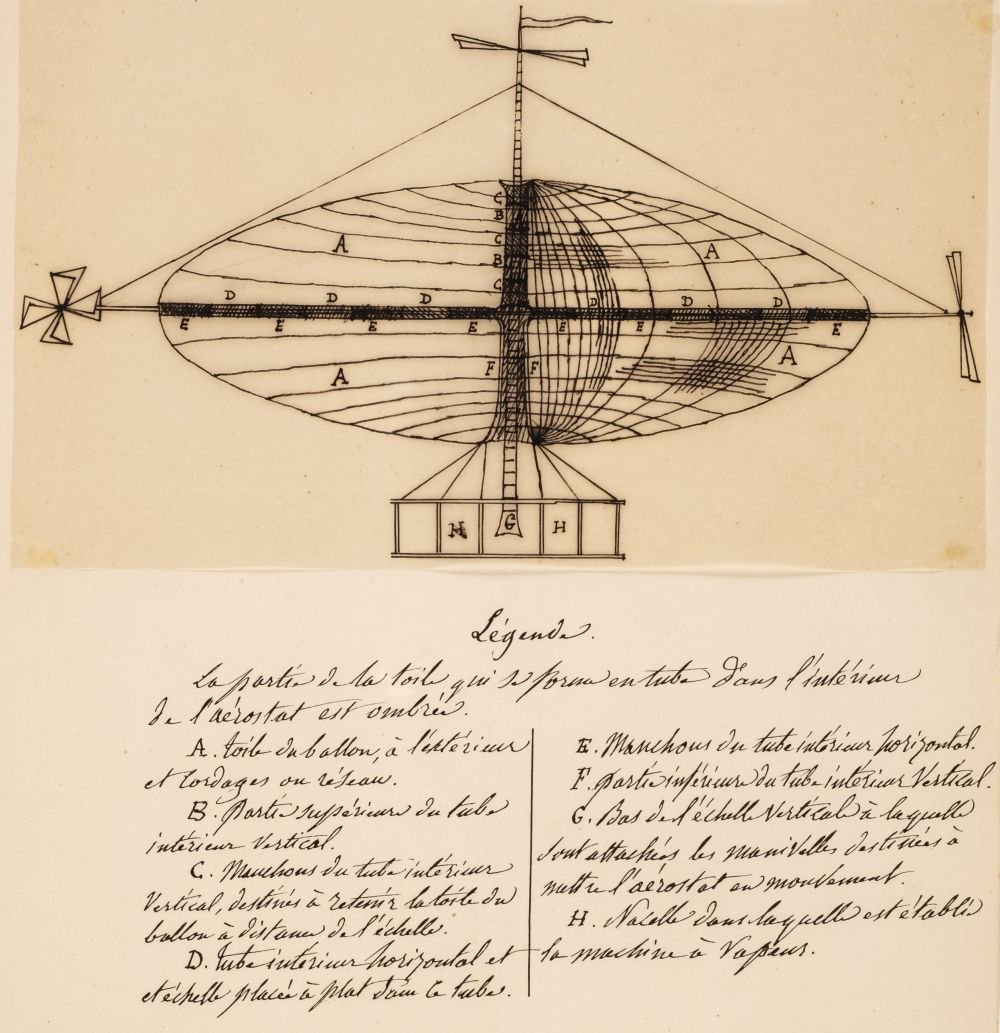 A
A
A
A
C
B
C
B
C
D
D
D
D
D
D
E
E
E
E
E
E
E
F
F
H
G
H
Légende.
La partie de la toile qui se forme en tube dans l'intérieur
de l'aérostat est ombrée.
A. toile du ballon, à l'extérieur
et cordages ou réseau.
B. Partie supérieure du tube
intérieur vertical.
C. Manchons du tube intérieur
Vertical, destinés à retenir la toile du
ballon à distance de l'échelle.
D. tube intérieur horizontal et
et échelle placée à plat dans ce tube.
E. Manchons du tube intérieur horizontal.
F. partie inférieure du tube intérieur Vertical.
G. Bas de l'échelle Verticale à laquelle
sont attachées les manivelles destinées à
mettre l'aérostat en mouvement.
H. Nacelle dans laquelle est établie
la machine à Vapeur.